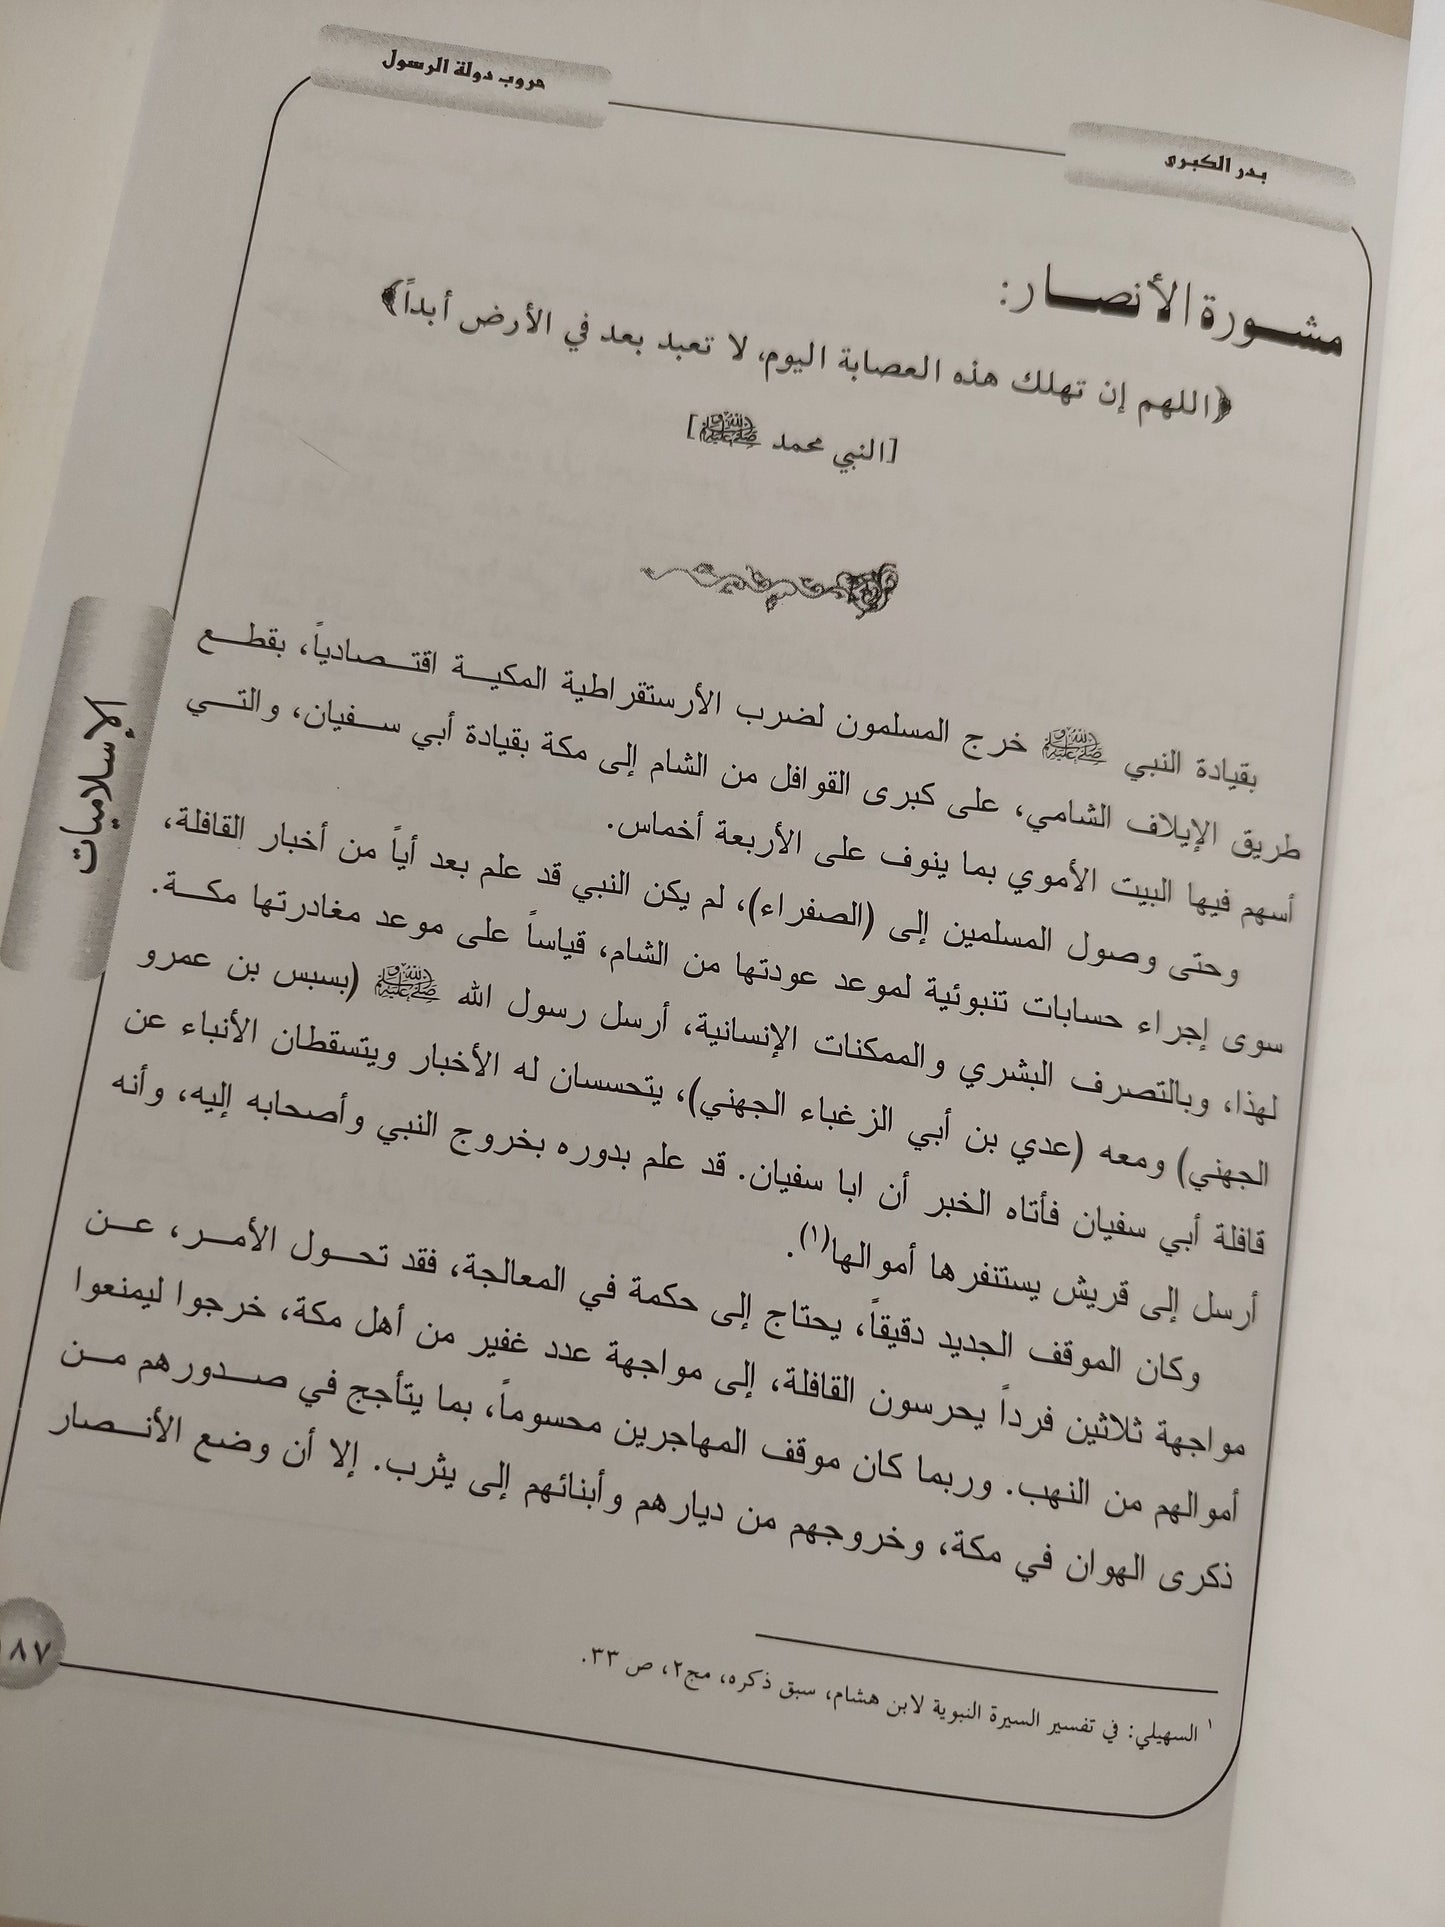 بدر الكبرى
حروب دولة الرسول
مشورة الأنصار:
﴿اللهم إن تهلك هذه العصابة اليوم، لا تعبد بعد في الأرض أبداً﴾
[النبي محمد ﷺ]
بقيادة النبي ﷺ خرج المسلمون لضرب الأرستقراطية المكية اقتصادياً، بقطع
طريق الإيلاف الشامي، على كبرى القوافل من الشام إلى مكة بقيادة أبي سفيان، والتي
أسهم فيها البيت الأموي بما ينوف على الأربعة أخماس.
وحتى وصول المسلمين إلى (الصفراء)، لم يكن النبي قد علم بعد أياً من أخبار القافلة،
سوى إجراء حسابات تنبوئية لموعد عودتها من الشام، قياساً على موعد مغادرتها مكة.
لهذا، وبالتصرف البشري والممكنات الإنسانية، أرسل رسول الله ﷺ (بسبس بن عمرو
الجهني) ومعه (عدي بن أبي الزغباء الجهني)، يتحسسان له الأخبار ويتسقطان الأنباء عن
قافلة أبي سفيان فأتاه الخبر أن ابا سفيان. قد علم بدوره بخروج النبي وأصحابه إليه، وأنه
أرسل إلى قريش يستنفرها أموالها(١).
وكان الموقف الجديد دقيقاً، يحتاج إلى حكمة في المعالجة، فقد تحول الأمر، عن
مواجهة ثلاثين فرداً يحرسون القافلة، إلى مواجهة عدد غفير من أهل مكة، خرجوا ليمنعوا
أموالهم من النهب. وربما كان موقف المهاجرين محسوماً، بما يتأجج في صدورهم من
ذكرى الهوان في مكة، وخروجهم من ديارهم وأبنائهم إلى يثرب. إلا أن وضع الأنصار
١ السهيلي: في تفسير السيرة النبوية لابن هشام، سبق ذكره، مج٢، ص ٣٣.
الإسلاميات
١٨٧